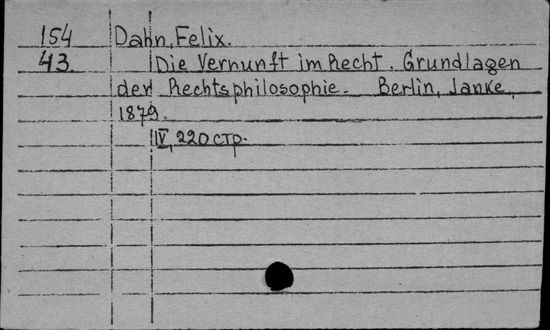 154 Dahn, Felix.
43. Die Vernunft im Recht. Grundlagen
der Rechtsphilosophie. Berlin, Janke,
1879.
IV, 220 стр.